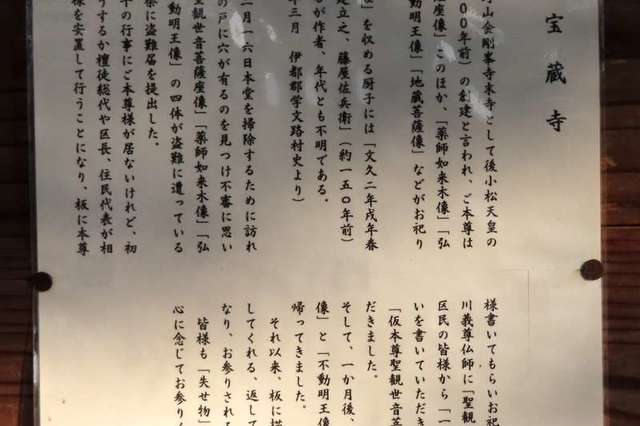 宝蔵寺
野山金剛峯寺末寺として後小松天皇の
00年前)の創建と言われ、ご本尊は
音菩薩座像」このほか、「薬師如来木像」「弘
動明王像」「地蔵菩薩像」などがお祀り
」を収める厨子には「文久二年戌年春
建立之、藤屋佐兵衛」(約一五0年前)
が作者、年代とも不明である。
年三月 伊都郡学文路村史より)
二月一六日本堂を掃除するために訪れ
の戸に穴が有るのを見つけ不審に思い
聖観世音菩薩座像」「薬師如来木像」「弘
不動明王像」の四体が盗難に遭っている
察に盗難届を提出した。
午の行事にご本尊様が居ないけれど、初
うするか檀徒総代や区長、住民代表が相
様を安置して行うことになり、板に本尊
様書いてもらいお祀
川義尊仏師に「聖観
区民の皆様から「一
いを書いていただき
「仮本尊聖観世音菩
だきました。
そして、一か月後、
像」と「不動明王像
帰ってきました。
それ以来、板に描
してくれる、返して
なり、お参りされる
皆様も「失せ物」
心に念じてお参りく